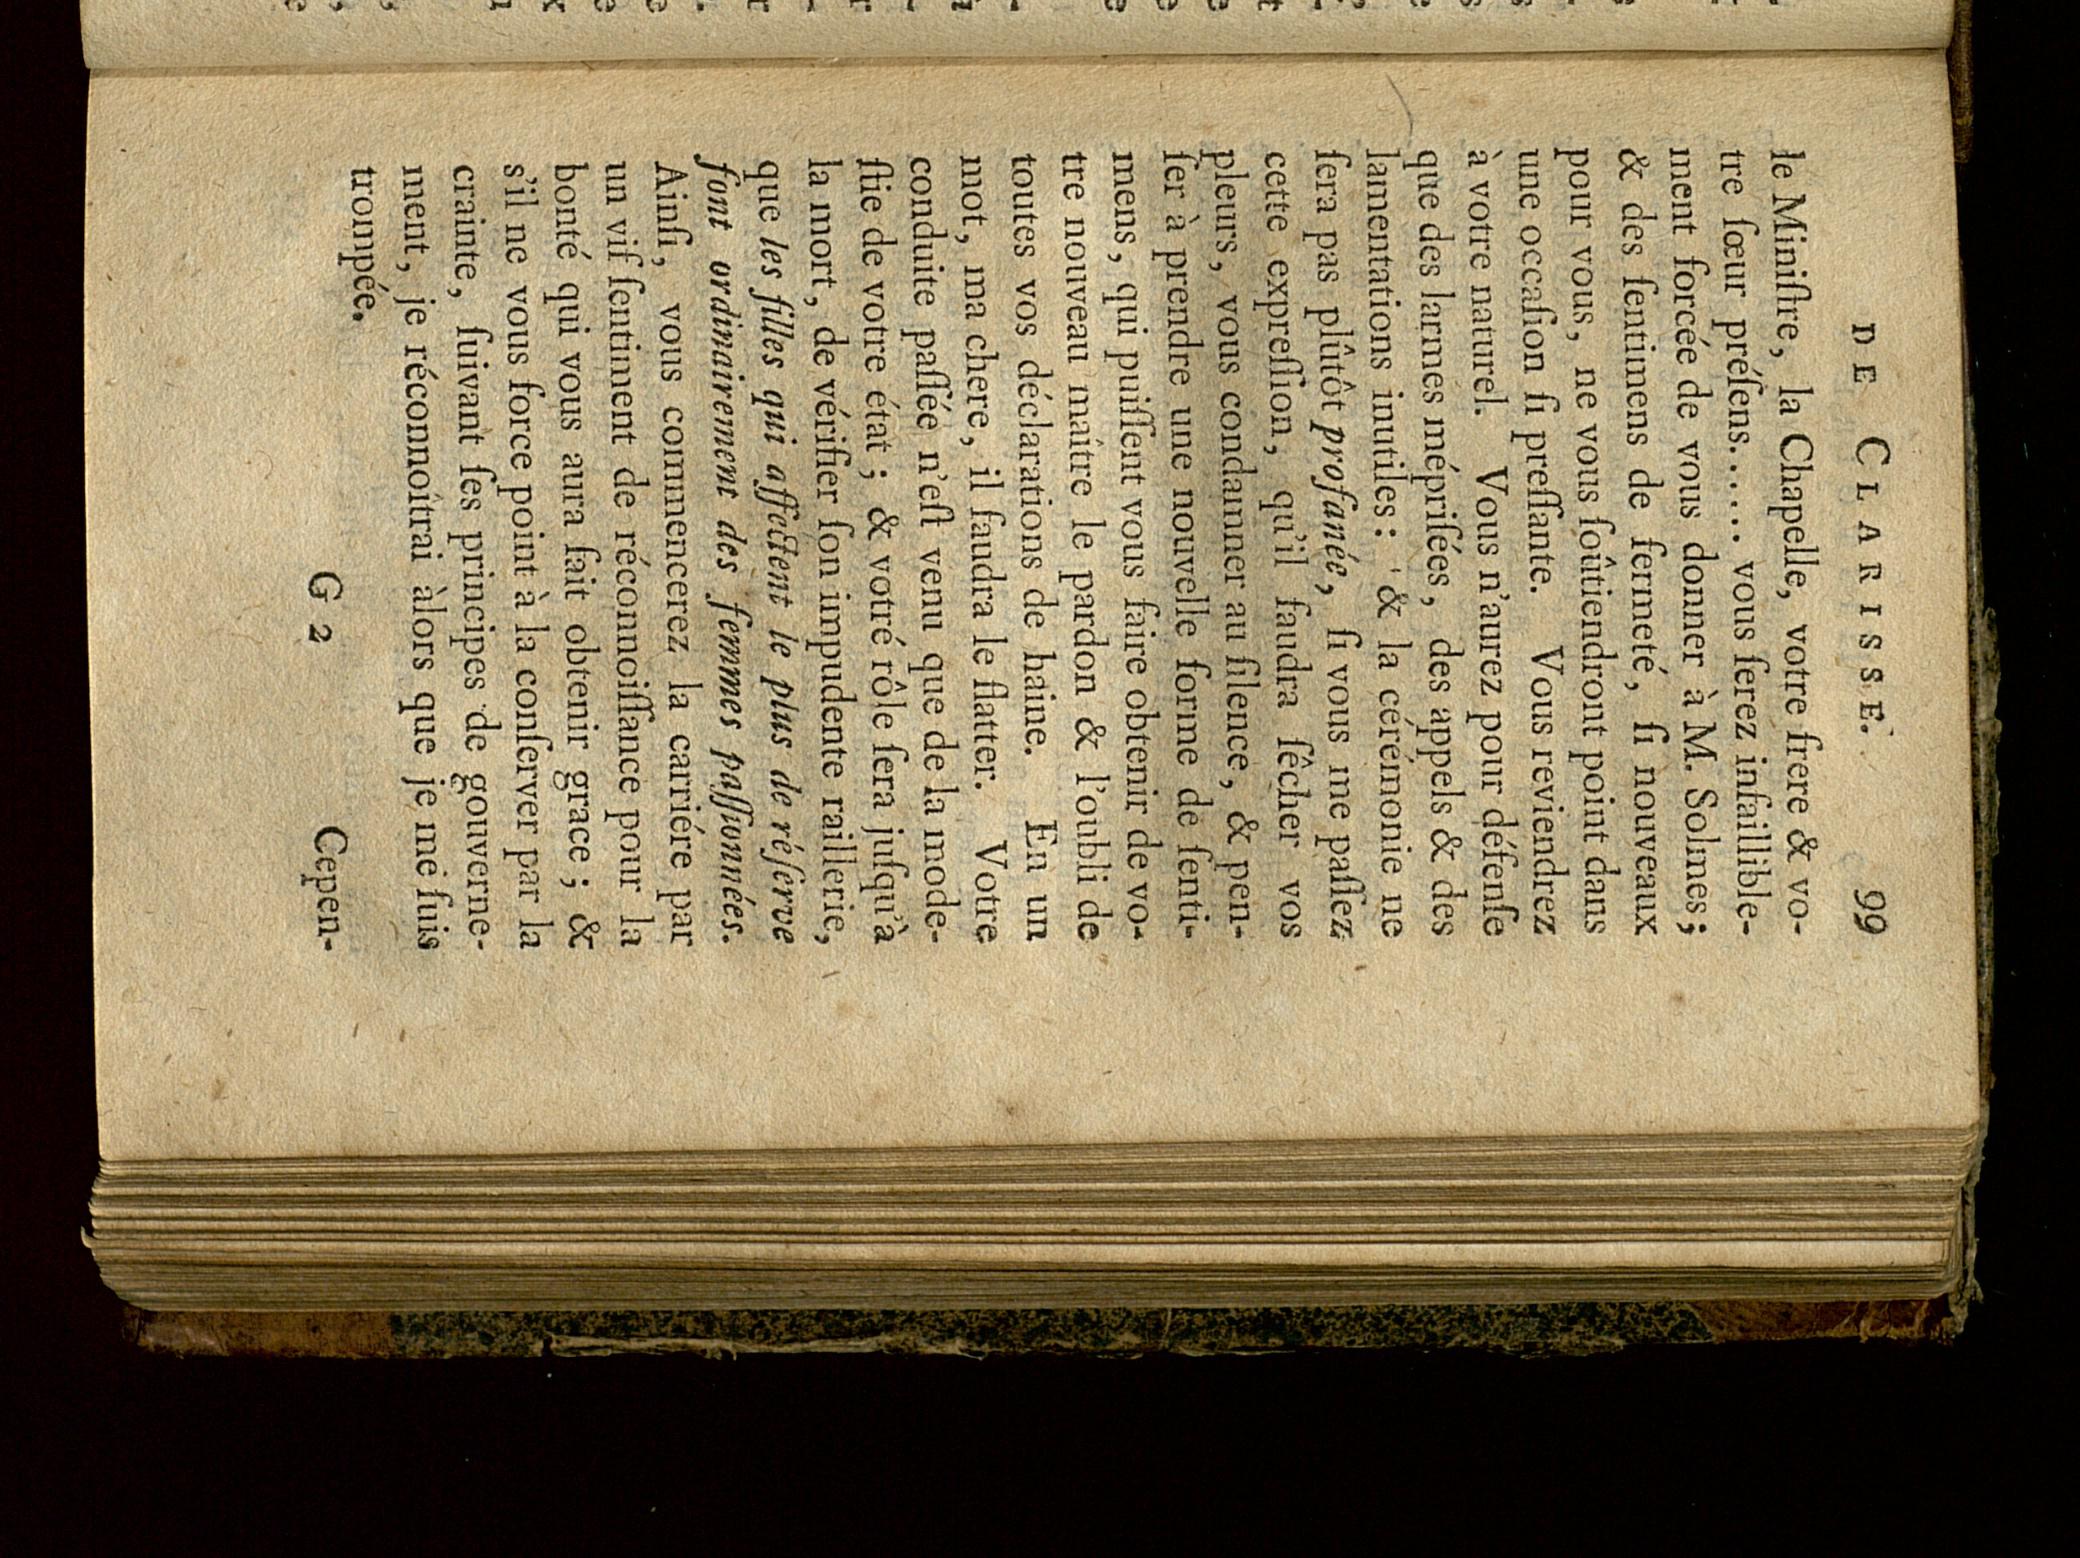 DE CLARISSE. 99
le Miniſtre, la Chapelle, votre frere & vo-
tre ſœur préſens...... vous ſerez infaillible-
ment forcée de vous donner à M. Solmes;
& des ſentimens de fermeté, ſi nouveaux
pour vous, ne vous ſoûtiendront point dans
une occaſion ſi preſſante. Vous reviendrez
à votre naturel. Vous n'aurez pour défenſe
que des larmes mépriſées, des appels & des
lamentations inutiles: & la cérémonie ne
ſera pas plûtôt profanée, ſi vous me paſſez
cette expreſſion, qu'il faudra ſêcher vos
pleurs, vous condamner au ſilence, & pen-
ſer à prendre une nouvelle forme de ſenti-
mens, qui puiſſent vous faire obtenir de vo-
tre nouveau maître le pardon & l'oubli de
toutes vos déclarations de haine. En un
mot, ma chere, il faudra le flatter. Votre
conduite paſſée n'eſt venu que de la mode-
ſtie de votre état; & votré rôle ſera juſqu'à
la mort, de vérifier ſon impudente raillerie,
que les filles qui affectent le plus de réſerve
ſont ordinairement des femmes paſſionnées.
Ainſi, vous commencerez la carriére par
un vif ſentiment de réconnoiſſance pour la
bonté qui vous aura fait obtenir grace; &
s'il ne vous force point à la conſerver par la
crainte, ſuivant ſes principes de gouverne-
ment, je réconnoîtrai àlors que je me ſuis
trompée.
G 2 Cepen-